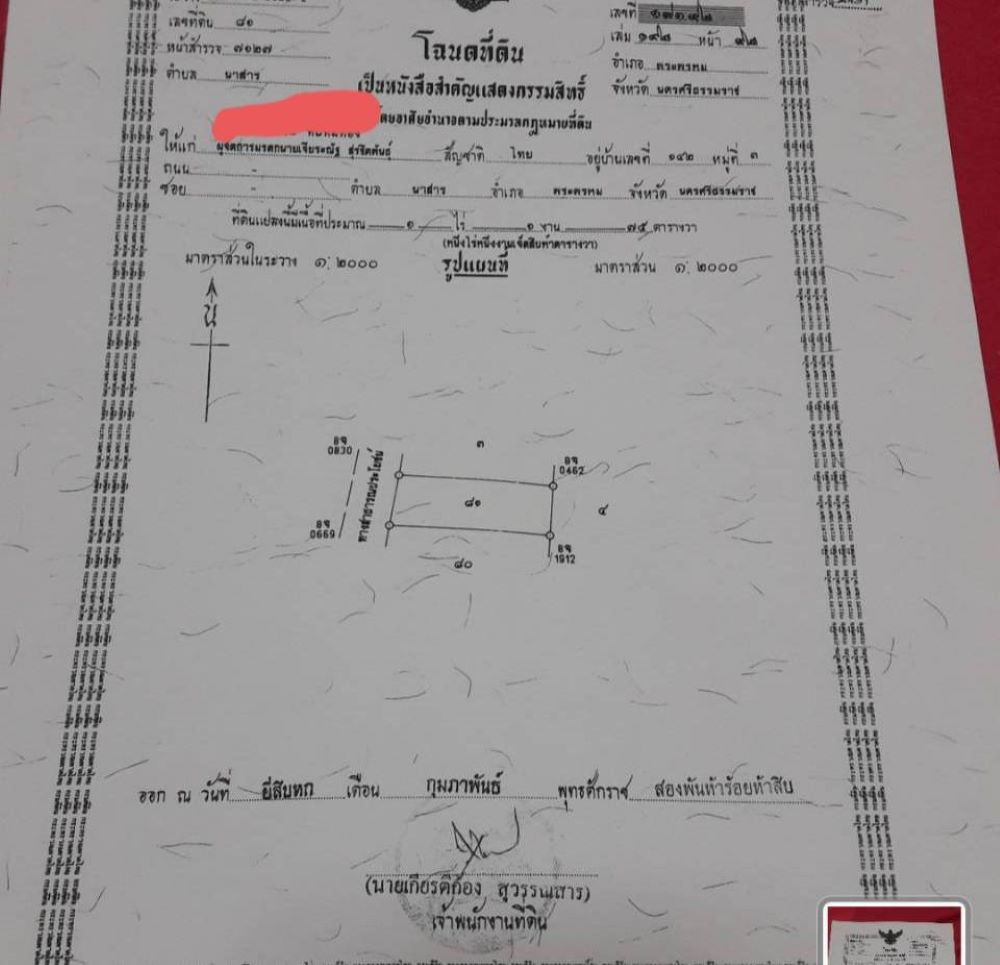 เลขที่ดิน ๘๑
เลขที่
หน้าสำรวจ ๗๑๒๗
เล่ม ๑๙๘ หน้า ๙๘
โฉนดที่ดิน
ตำบล นาสาร
อำเภอ พระพรหม
เป็นหนังสือสำคัญแสดงกรรมสิทธิ์
จังหวัด นครศรีธรรมราช
โดยอาศัยอำนาจตามประมวลกฎหมายที่ดิน
ให้แก่ ผู้จัดการมรดกนายเจียระณัฐ สุรชิตพันธ์ สัญชาติ ไทย อยู่บ้านเลขที่ ๑๔๒ หมู่ที่ ๓
ถนน -
ซอย - ตำบล นาสาร อำเภอ พระพรหม จังหวัด นครศรีธรรมราช
ที่ดินแปลงนี้มีเนื้อที่ประมาณ ๑ ไร่ ๑ งาน ๗๕ ตารางวา
(หนึ่งไร่หนึ่งงานเจ็ดสิบห้าตารางวา)
มาตราส่วนในระวาง ๑:๒๐๐๐ รูปแผนที่ มาตราส่วน ๑:๒๐๐๐
น
๓
อจ
0830
อจ
0462
ทางสาธารณประโยชน์
๘๑
๔
อจ
0669
อจ
1912
๘๐
ออก ณ วันที่ ยี่สิบหก เดือน กุมภาพันธ์ พุทธศักราช สองพันห้าร้อยห้าสิบ
(นายเกียรติก้อง สุวรรณสาร)
เจ้าพนักงานที่ดิน